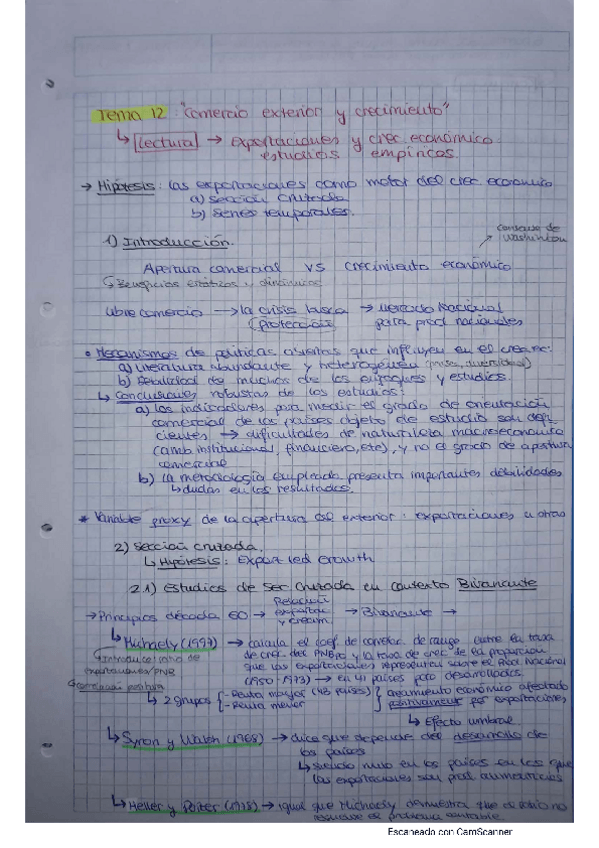 Tema 12 "Comercio exterior y crecimiento"
↳ Lectura → exportaciones y crec. económico
estudios empíricos.
→ Hipótesis: las exportaciones como motor del crec económico
a) sección cruzada
b) series temporales.
1) Introducción.
Consenso de Washington
Apertura comercial VS crecimiento económico
↳ Beneficios estáticos y dinámicos
Libre comercio → la crisis busca → mercado Nacional
protección para prod nacionales
• Mecanismos de políticas abiertas que influyen en el crec ec:
a) literatura abundante y heterogénea
b) Debilidad de muchos de los enfoques y estudios.
↳ Conclusiones robustas de los estudios:
a) los indicadores para medir el grado de orientación
comercial de los países objeto de estudio son defi
cientes → dificultades de naturaleza macroeconómica
(amb institucional, financiero, etc), y no el grado de apertura
comercial
b) La metodología empleada presenta importantes debilidades
↳ dudas en los resultados.
* Variable proxy de la apertura del exterior: exportaciones u otras
2) Sección cruzada.
↳ Hipótesis: Export led Growth
2.1) Estudios de Sec Cruzada en contexto Bivariante
→ Principios década 60 → Relación → Bivariante →
exportac
y crecim.
↳ Michaely (1977) → calcula el coef. de correlac de rango entre la tasa
de crec. del PNBpc y la tasa de crec de la proporción
que las exportaciones representan sobre el Prod Nacional
(1950-1973) → en 41 países poco desarrollados
↳ Introduce ratio de
exportaciones/PNB
↳ Correlación positiva
↳ 2 grupos - Renta mayor (23 países) crecimiento económico afectado
- Renta menor positivamente por exportaciones
↳ Efecto umbral.
↳ Syron y Walsh (1968) → dice que depende del desarrollo de
los países
↳ siendo nulo en los países en los que
las exportaciones son prod alimenticios
↳ Heller y Porter (1978) → igual que Michaely demuestra que el ratio no
resuelve el problema contable.
Escaneado con CamScanner